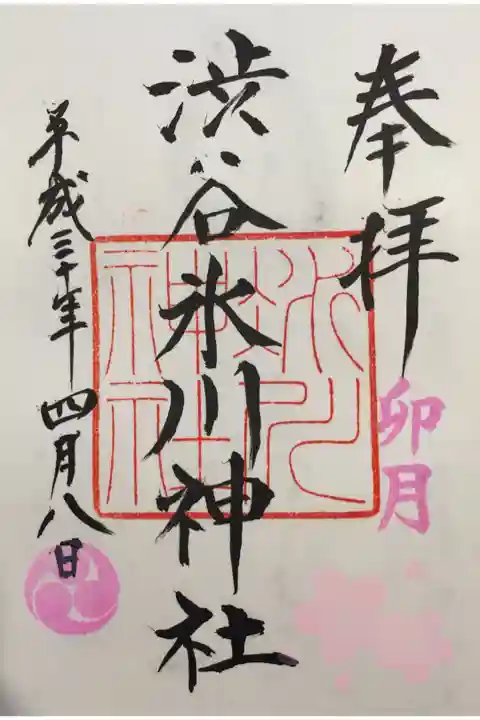 奉拝
卯月
渋谷氷川神社
氷川神社
平成三十年四月八日